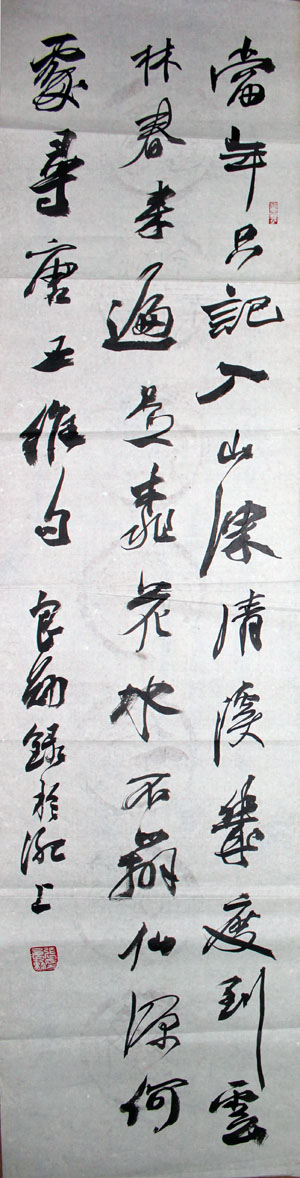 當年只記入山深清溪幾度到雲
林春來遍是桃花水不辨仙源何
處尋唐王維句 良勋錄於淝上